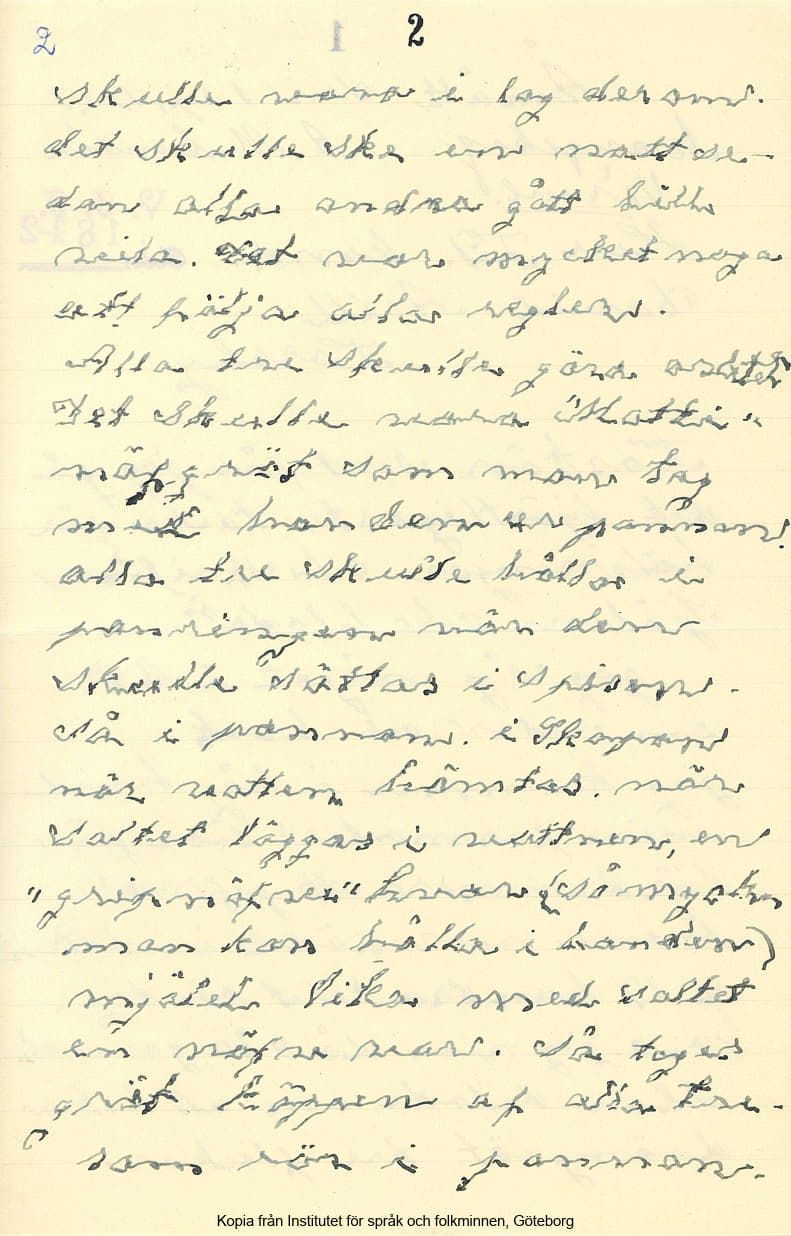 2 2
skulle vara i lag derom.
det skulle ske en natt se-
dan alla andra gått till
vila. Det var mycket noga
att följa alla reglerna.
Alla tre skulle göra
Det skulle vara
gröt som man tog
med handen ur pannan.
alla tre skulle hålla i
panringen när den
skulle sättas i spisen.
Så i pannan. i Skopan
när vatten hämtas. när
saltet läggas i vattnen, en
"gripnäfve" hvar (så mycke
man kan hålla i handen)
mjölet lika med saltet
en näfve var. Så tages
gröt käppen af alla tre.
som rör i pannan.
Kopia från Institutet för språk och folkminnen, Göteborg